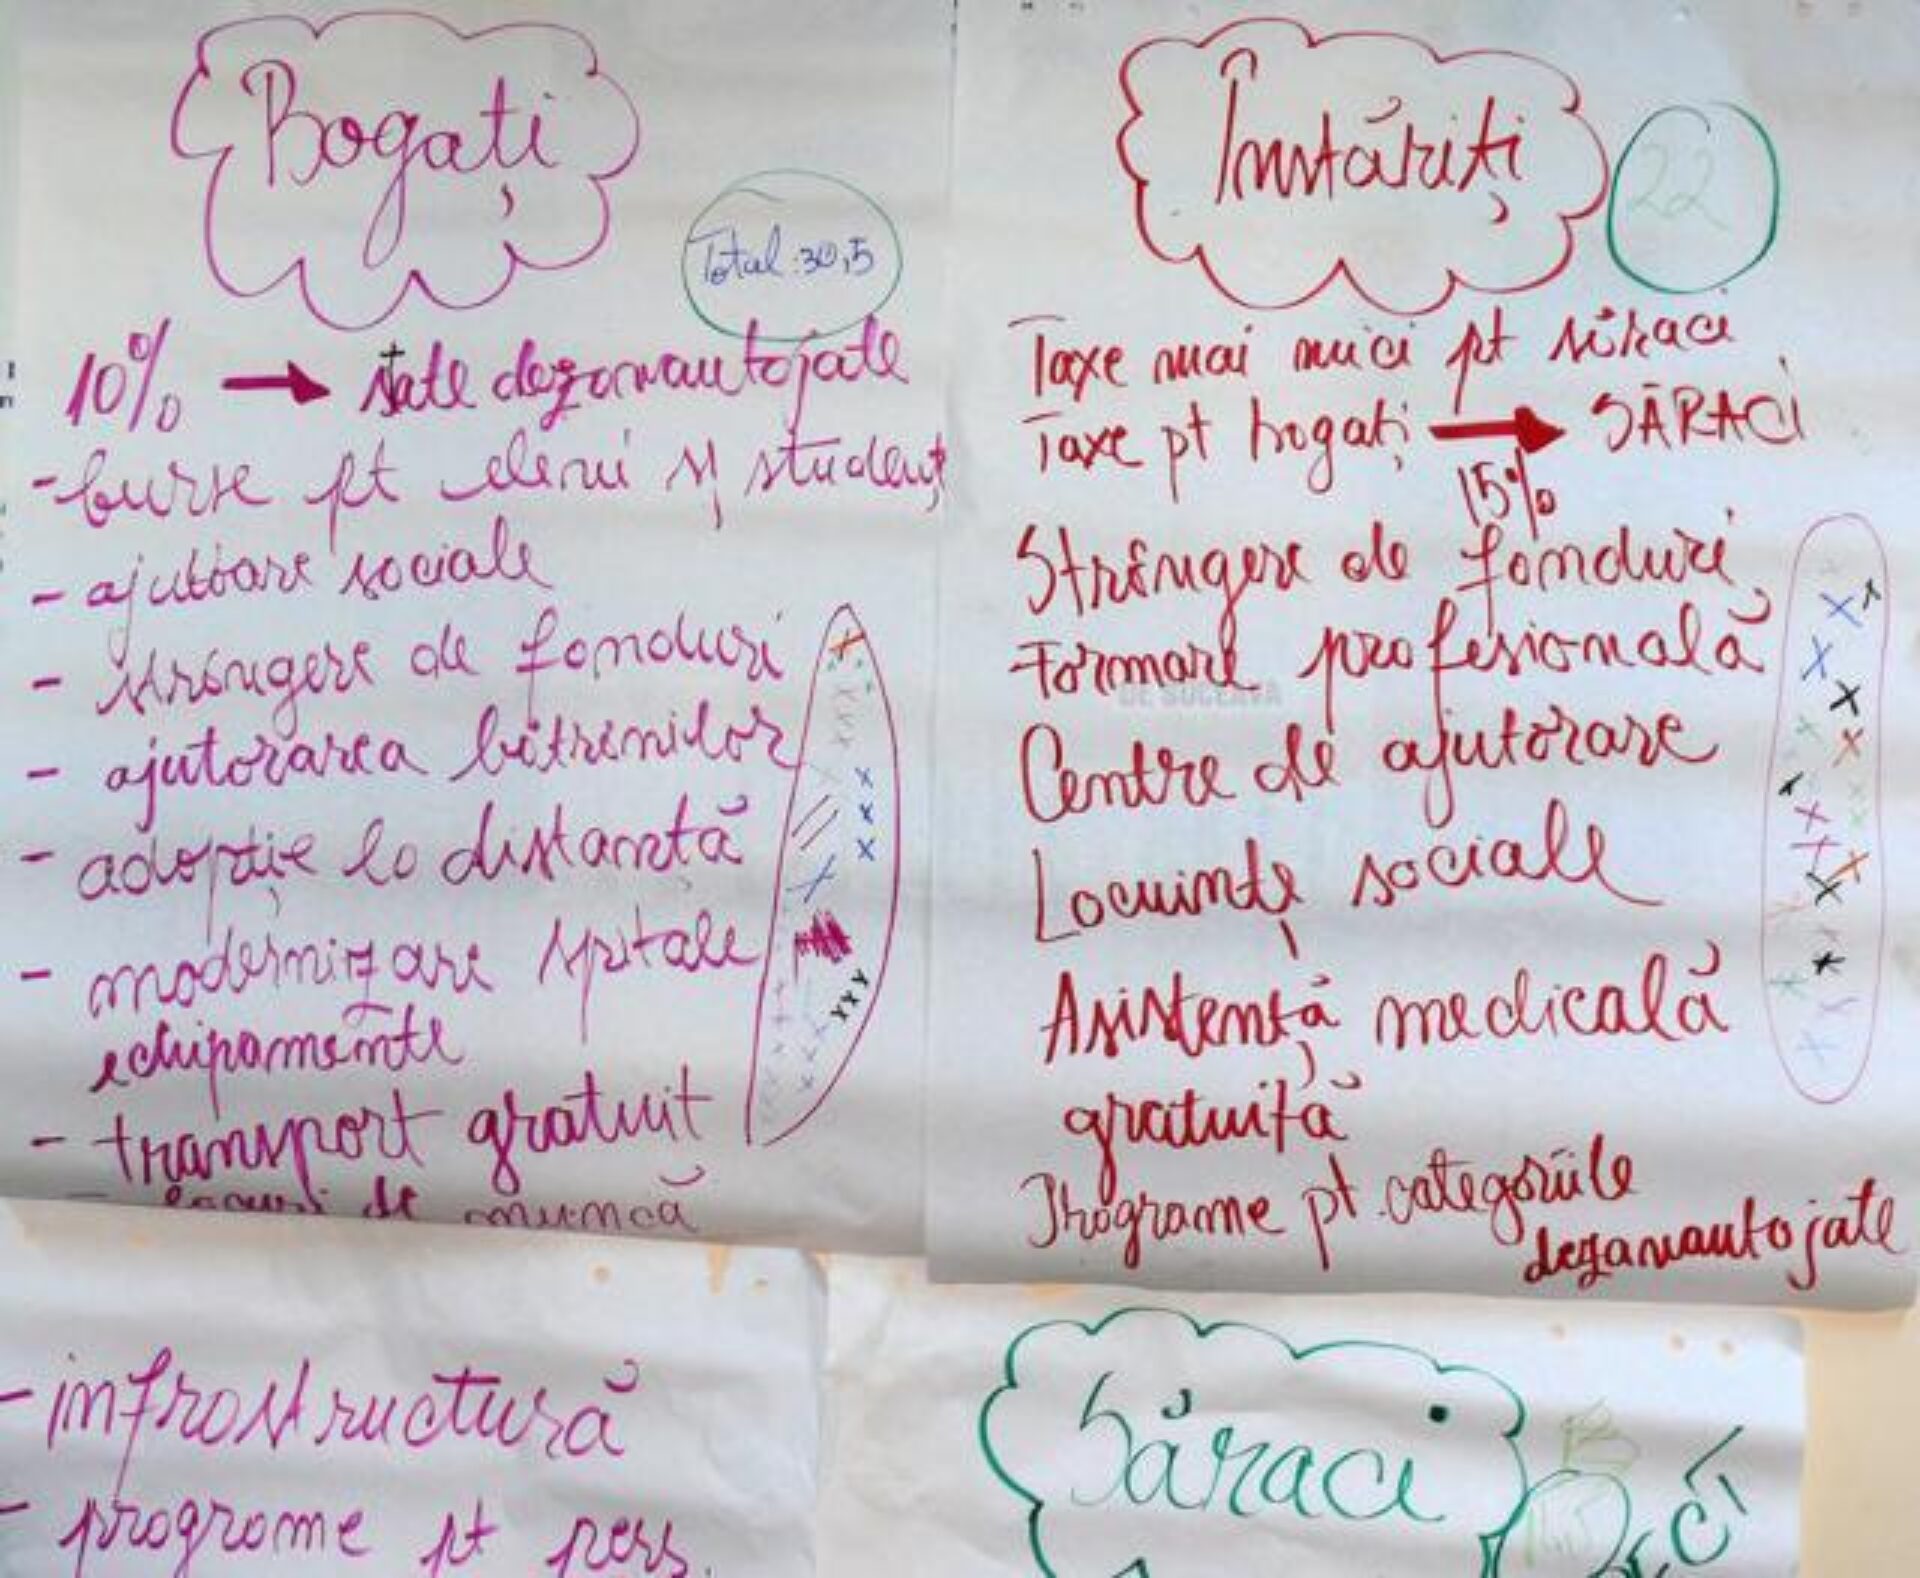 Bogați
Total: 30,5
10% → state dezavantajate
- burse pt elevi și studenț
- ajutoare sociale
- strângere de fonduri
- ajutorarea bătrânilor
- adopție la distanță
- modernizare spitale
echipamente
- transport gratuit
- locuri de muncă
- infrastructură
- programe pt pers.
Înstăriți
22
Taxe mai mici pt săraci
Taxe pt bogați → SĂRACI
15%
Strângere de fonduri
Formare profesională
DE SUCEAVA
Centre de ajutorare
Locuințe sociale
Asistență medicală
gratuită
Programe pt categoriile
dezavantajate
Săraci